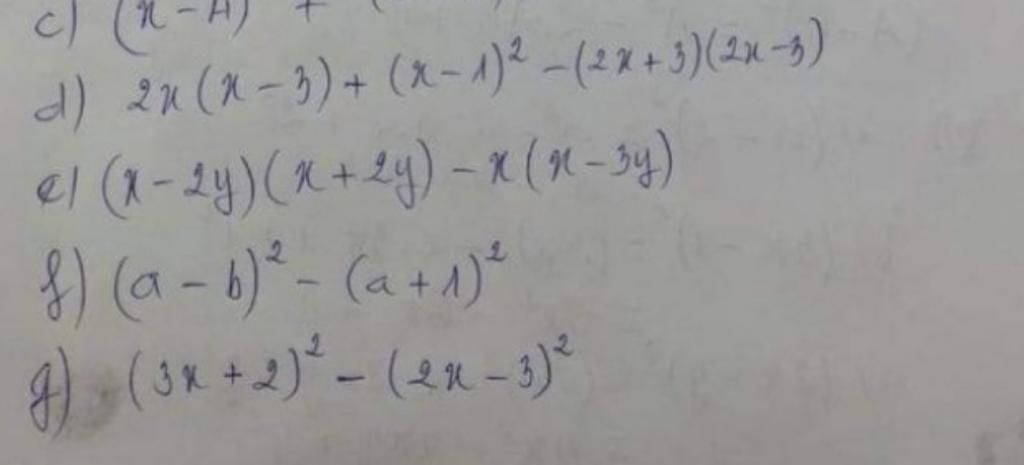 c) (x-A) + (
d) 2x(x-3)+(x-1)²-(2x+3)(2x-3)
e) (x-2y)(x+2y)-x(x-3y)
f) (a-b)²-(a+1)²
g) (3x+2)²-(2x-3)²